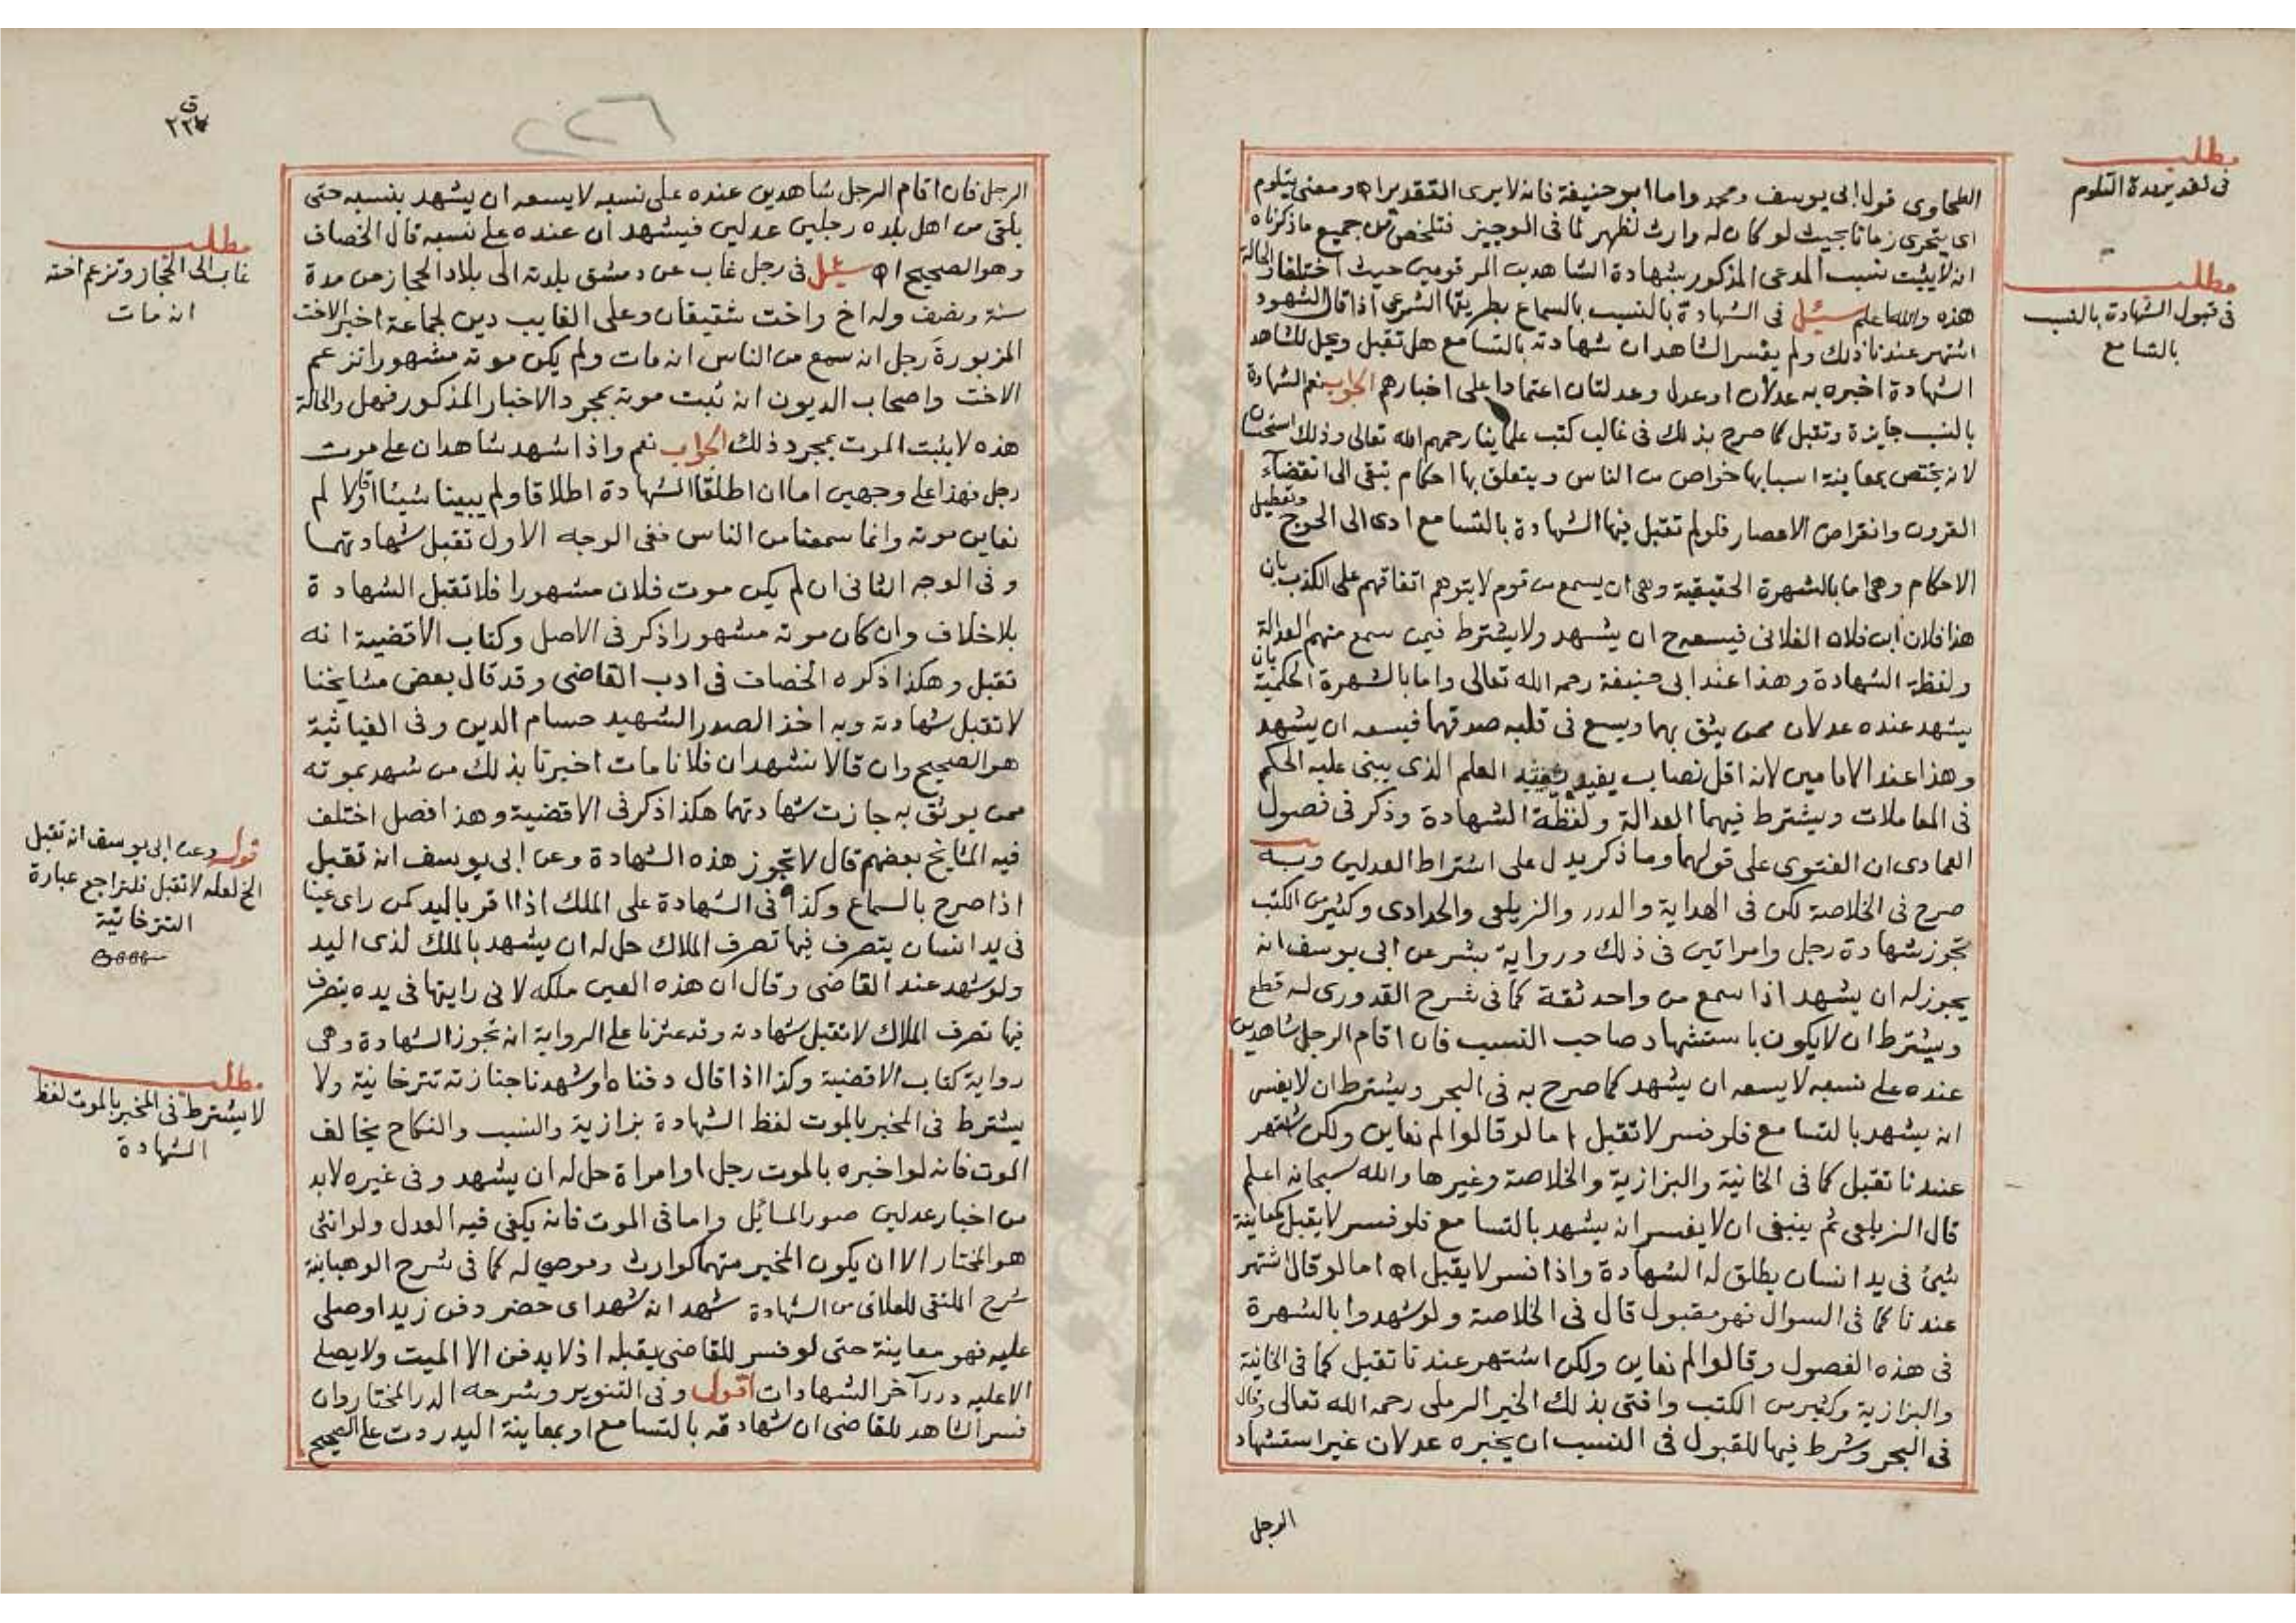 مطلب
فى تقدير مدة التلوم
مطلب
فى قبول الشهادة بالنسب
بالتسامع
الطحاوى قول ابى يوسف ومحمد واما ابو حنيفة فانه لا يرى التقدير اه ومعنى يتلوم
اى يتحرى زمانا بحيث لو كان له وارث لظهر كما فى الوجيز فتلخص من جميع ما ذكرناه
انه لا يثبت نسب المدعى المذكور بشهادة الشاهدين المرقومين حيث اختلفا والحالة
هذه والله اعلم سئل فى الشهادة بالنسب بالسماع بطريقها الشرعى اذا قال الشهود
اشتهر عندنا ذلك ولم يفسر الشاهد ان شهادته بالتسامع هل تقبل ويحل للشاهد
الشهادة اخبره به عدلان او عدل وعدلتان اعتمادا على اخبارهم الجواب نعم الشهادة
بالنسب جايزة وتقبل كما صرح بذلك فى غالب كتب علماينا رحمهم الله تعالى وذلك استحسان
لانه يختص بمعاينة اسبابها خواص من الناس ويتعلق بها احكام تبقى الى انقضآء
القرون وانقراض الاعصار فلو لم تقبل فيها الشهادة بالتسامع ادى الى الحرج وتعطيل
الاحكام وهى اما بالشهرة الحقيقية وهى ان يسمع من قوم لا يتوهم اتفاقهم على الكذب بان
هذا فلان ابن فلان الفلانى فيسعه ح ان يشهد ولا يشترط فيمن سمع منهم العدالة
ولفظة الشهادة وهذا عند ابى حنيفة رحمه الله تعالى واما بالشهرة الحكمية بان
يشهد عنده عدلان ممن يثق بهما ويسع فى قلبه صدقهما فيسعه ان يشهد
وهذا عند الامامين لانه اقل نصاب يفيد العلم الذى يبنى عليه الحكم
فى المعاملات ويشترط فيهما العدالة ولفظة الشهادة وذكر فى فصول
العمادى ان الفتوى على قولهما وما ذكر يدل على اشتراط العدلين وبه
صرح فى الخلاصة لكن فى الهداية والدرر والزيلعى والحدادى وكثير من الكتب
تجوز شهادة رجل وامراتين فى ذلك ورواية بشر عن ابى يوسف انه
يجوز له ان يشهد اذا سمع من واحد ثقة كما فى شرح القدورى له قطع
ويشترط ان لا يكون باستشهاد صاحب النسب فان اقام الرجل شاهدين
عنده على نسبه لا يسعه ان يشهد كما صرح به فى البحر ويشترط ان لا يفسر
انه يشهد بالتسامع فلو فسر لا تقبل اما لو قالوا لم نعاين ولكن اشتهر
عندنا تقبل كما فى الخانية والبزازية والخلاصة وغيرها والله سبحانه اعلم
قال الزيلعى ثم ينبغى ان لا يفسر انه يشهد بالتسامع فلو فسر لا يقبل كمعاينة
شئ فى يد انسان يطلق له الشهادة واذا فسر لا يقبل اه اما لو قال اشتهر
عندنا كما فى السوال فهو مقبول قال فى الخلاصة ولو شهدوا بالشهرة
فى هذه الفصول وقالوا لم نعاين ولكن اشتهر عندنا تقبل كما فى الخانية
والبزازية وكثير من الكتب وافتى بذلك الخير الرملى رحمه الله تعالى وقال
فى البحر وشرط فيها للقبول فى النسب ان يخبره عدلان غير استشهاد
الرجل
ق
٢٢٦
الرجل فان اقام الرجل شاهدين عنده على نسبه لا يسعه ان يشهد بنسبه حتى
يلقى من اهل بلده رجلين عدلين فيشهد ان عنده على نسبه قال الخصاف
وهو الصحيح اه سئل فى رجل غاب عن دمشق بلدته الى بلاد الحجاز من مدة
سنة ونصف وله اخ واخت شقيقان وعلى الغايب دين لجماعة اخبر الاخت
المزبورة رجل انه سمع من الناس انه مات ولم يكن موته مشهورا تزعم
الاخت واصحاب الديون انه ثبت موته بمجرد الاخبار المذكور فهل والحالة
هذه لا يثبت الموت بمجرد ذلك الجواب نعم واذا شهد شاهدان على موت
رجل فهذا على وجهين اما ان اطلقا الشهادة اطلاقا ولم يبينا شيئا او قالا لم
نعاين موته وانما سمعنا من الناس ففى الوجه الاول تقبل شهادتهما
وفى الوجه الثانى ان لم يكن موت فلان مشهورا فلا تقبل الشهادة
بلا خلاف وان كان موته مشهورا ذكر فى الاصل وكتاب الاقضية انه
تقبل وهكذا ذكره الخصاف فى ادب القاضى وقد قال بعض مشايخنا
لا تقبل شهادته وبه اخذ الصدر الشهيد حسام الدين وفى الغياثية
هو الصحيح وان قالا نشهد ان فلانا مات اخبرنا بذلك من شهد بموته
ممن يوثق به جازت شهادتهما هكذا ذكر فى الاقضية وهذا فصل اختلف
فيه المشايخ بعضهم قال لا تجوز هذه الشهادة وعن ابى يوسف انه تقبل
اذا صرح بالسماع وكذا فى الشهادة على الملك اذا اقر باليد كمن راى عينا
فى يد انسان يتصرف فيها تصرف الملاك حل له ان يشهد بالملك لذى اليد
ولو شهد عند القاضى وقال ان هذه العين ملكه لانى رايتها فى يده يتصرف
فيها تصرف الملاك لا تقبل شهادته وقد عثرنا على الرواية انه تجوز الشهادة وهى
رواية كتاب الاقضية وكذا اذا قال دفناه او شهدنا جنازته تترخانية ولا
يشترط فى المخبر بالموت لفظ الشهادة بزازية والنسب والنكاح يخالف
الموت فانه لو اخبره بالموت رجل او امراة حل له ان يشهد وفى غيره لابد
من اخبار عدلين صور المسائل واما فى الموت فانه يكفى فيه العدل ولو انثى
هو المختار الا ان يكون المخبر متهما كوارث وموصى له كما فى شرح الوهبانية
شرح الملتقى للعلائى من الشهادة شهد انه شهد اى حضر دفن زيد او صلى
عليه فهو معاينة حتى لو فسر للقاضى يقبله اذ لا يدفن الا الميت ولا يصلى
الا عليه درر آخر الشهادات اقول وفى التنوير وشرحه الدر المختار وان
فسر الشاهد للقاضى ان شهادته بالتسامع او بمعاينة اليد ردت على الصحيح
مطلب
غاب الى الحجاز وتزعم اخته
انه مات
قوله وعن ابى يوسف انه تقبل
الخ لعله لا تقبل فلتراجع عبارة
التترخانية
مطلب
لا يشترط فى المخبر بالموت لفظ
الشهادة